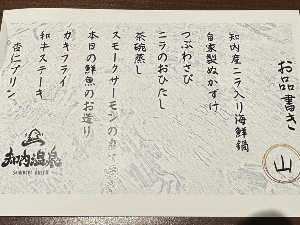 お品書き
山
知内産ニラ入り海鮮鍋
自家製ぬかずけ
つぶわさび
ニラのおひたし
茶碗蒸し
スモークサーモンの
本日の鮮魚のお造り
カキフライ
和牛ステーキ
杏仁プリン
知内温泉